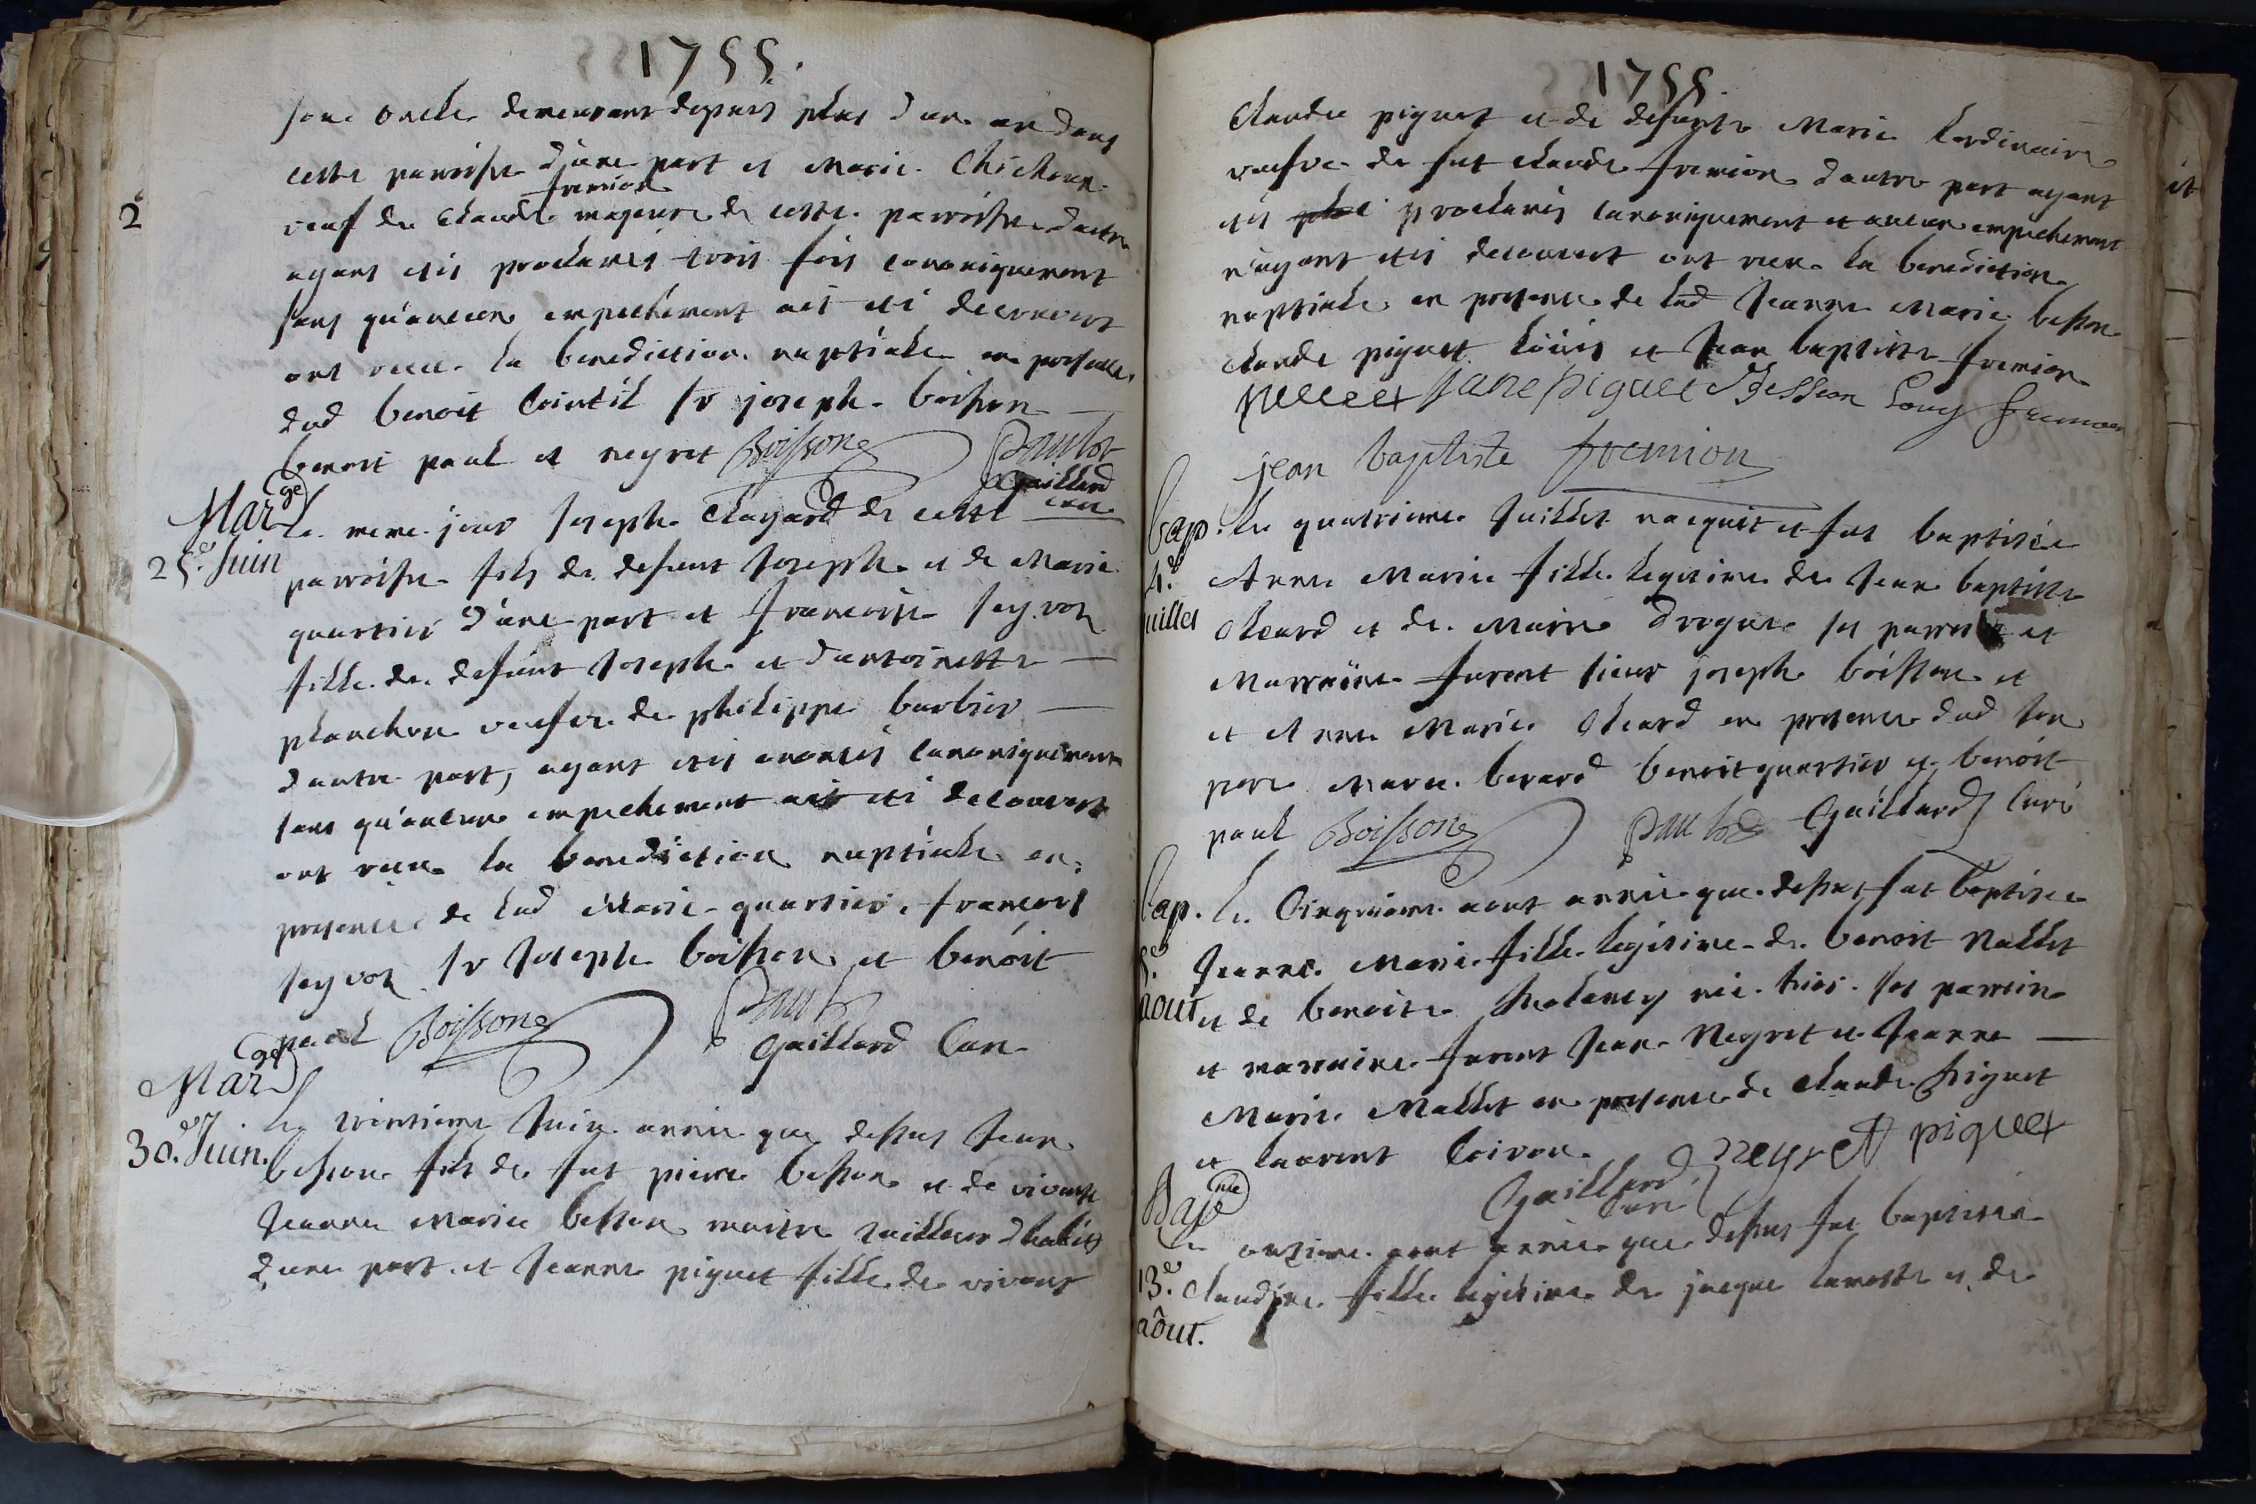 1755.
son oncle demeurant depuis plus d'un an dans
cette paroisse d'une part et Marie Chichoux
fremion
veuf de Claude majeure de cette paroisse d'autre
ayant etés proclamés trois fois canoniquement
sans qu'aucun empechement ait eté decouvert
ont recu la benediction nuptiale en presence
dud benoit Cointil sr joseph boisson
benoit paul et negret Boisson Paul
Gaillard
cure
Marge
25.e Juin
Le meme jour joseph Chayard de cette
paroisse fils de defunt Joseph et de Marie
quartier d'une part et francoise seyvoz
fille de defunt Joseph et d'antoinette
planchon veufve de philippe barbier
d'autre part, ayant etés anoncés canoniquement
sans qu'aucun empechement ait eté decouvert
ont recu la benediction nuptiale en
presence de lad Marie quartier, francois
seyvoz sr Joseph boisson et benóit
paul Boisson Paul
Gaillard Cure
Marge
30.e Juin.
Le trentieme Juin année que dessus Jean
besson fils de fut pierre besson et de vivante
Jeanne Marie besson maitre tailleur d'habits
d'une part et Jeanne piguet fille de vivant
2
1755.
Claude piguet et de defunte Marie Lardinaire
veufve de fut claude fremion d'autre part ayant
etés proclamés canoniquement et aucun empechement
n'ayant etés decouvert ont recu la benediction
nuptiale en presence de lad Jeanne Marie besson
claude piguet Loüis et Jean baptiste fremion
piguet Jane piguet Besson Louy fremion
jean baptiste fremion
bap.
4.e
juillet
Le quatrieme Juillet nacquit et fut baptisée
Anne Marie fille legitime de Jean baptiste
Oleard et de Marie Drogue ses parrain et
Marraine furent sieur joseph boisson et
et Anne Marie Oleard en presence dud son
pere Marc berard benoit quartier et benóit
paul Boisson Paul Gaillard Curé
bap.
5.e
aout
Le Cinquieme aout année que dessus fut baptisée
Jeanne Marie fille legitime de benoit Mallet
et de benoite ses parrin
et marraine furent Jean Negret et Jeanne
Marie Mallet en presence de claude piguet
et laurent Coiron. neyret piguet
Gaillard
Curé
Bapme
13.e
août.
Le onzieme aout année que dessus fut baptisée
Claudine fille legitime de jacque lamotte et de